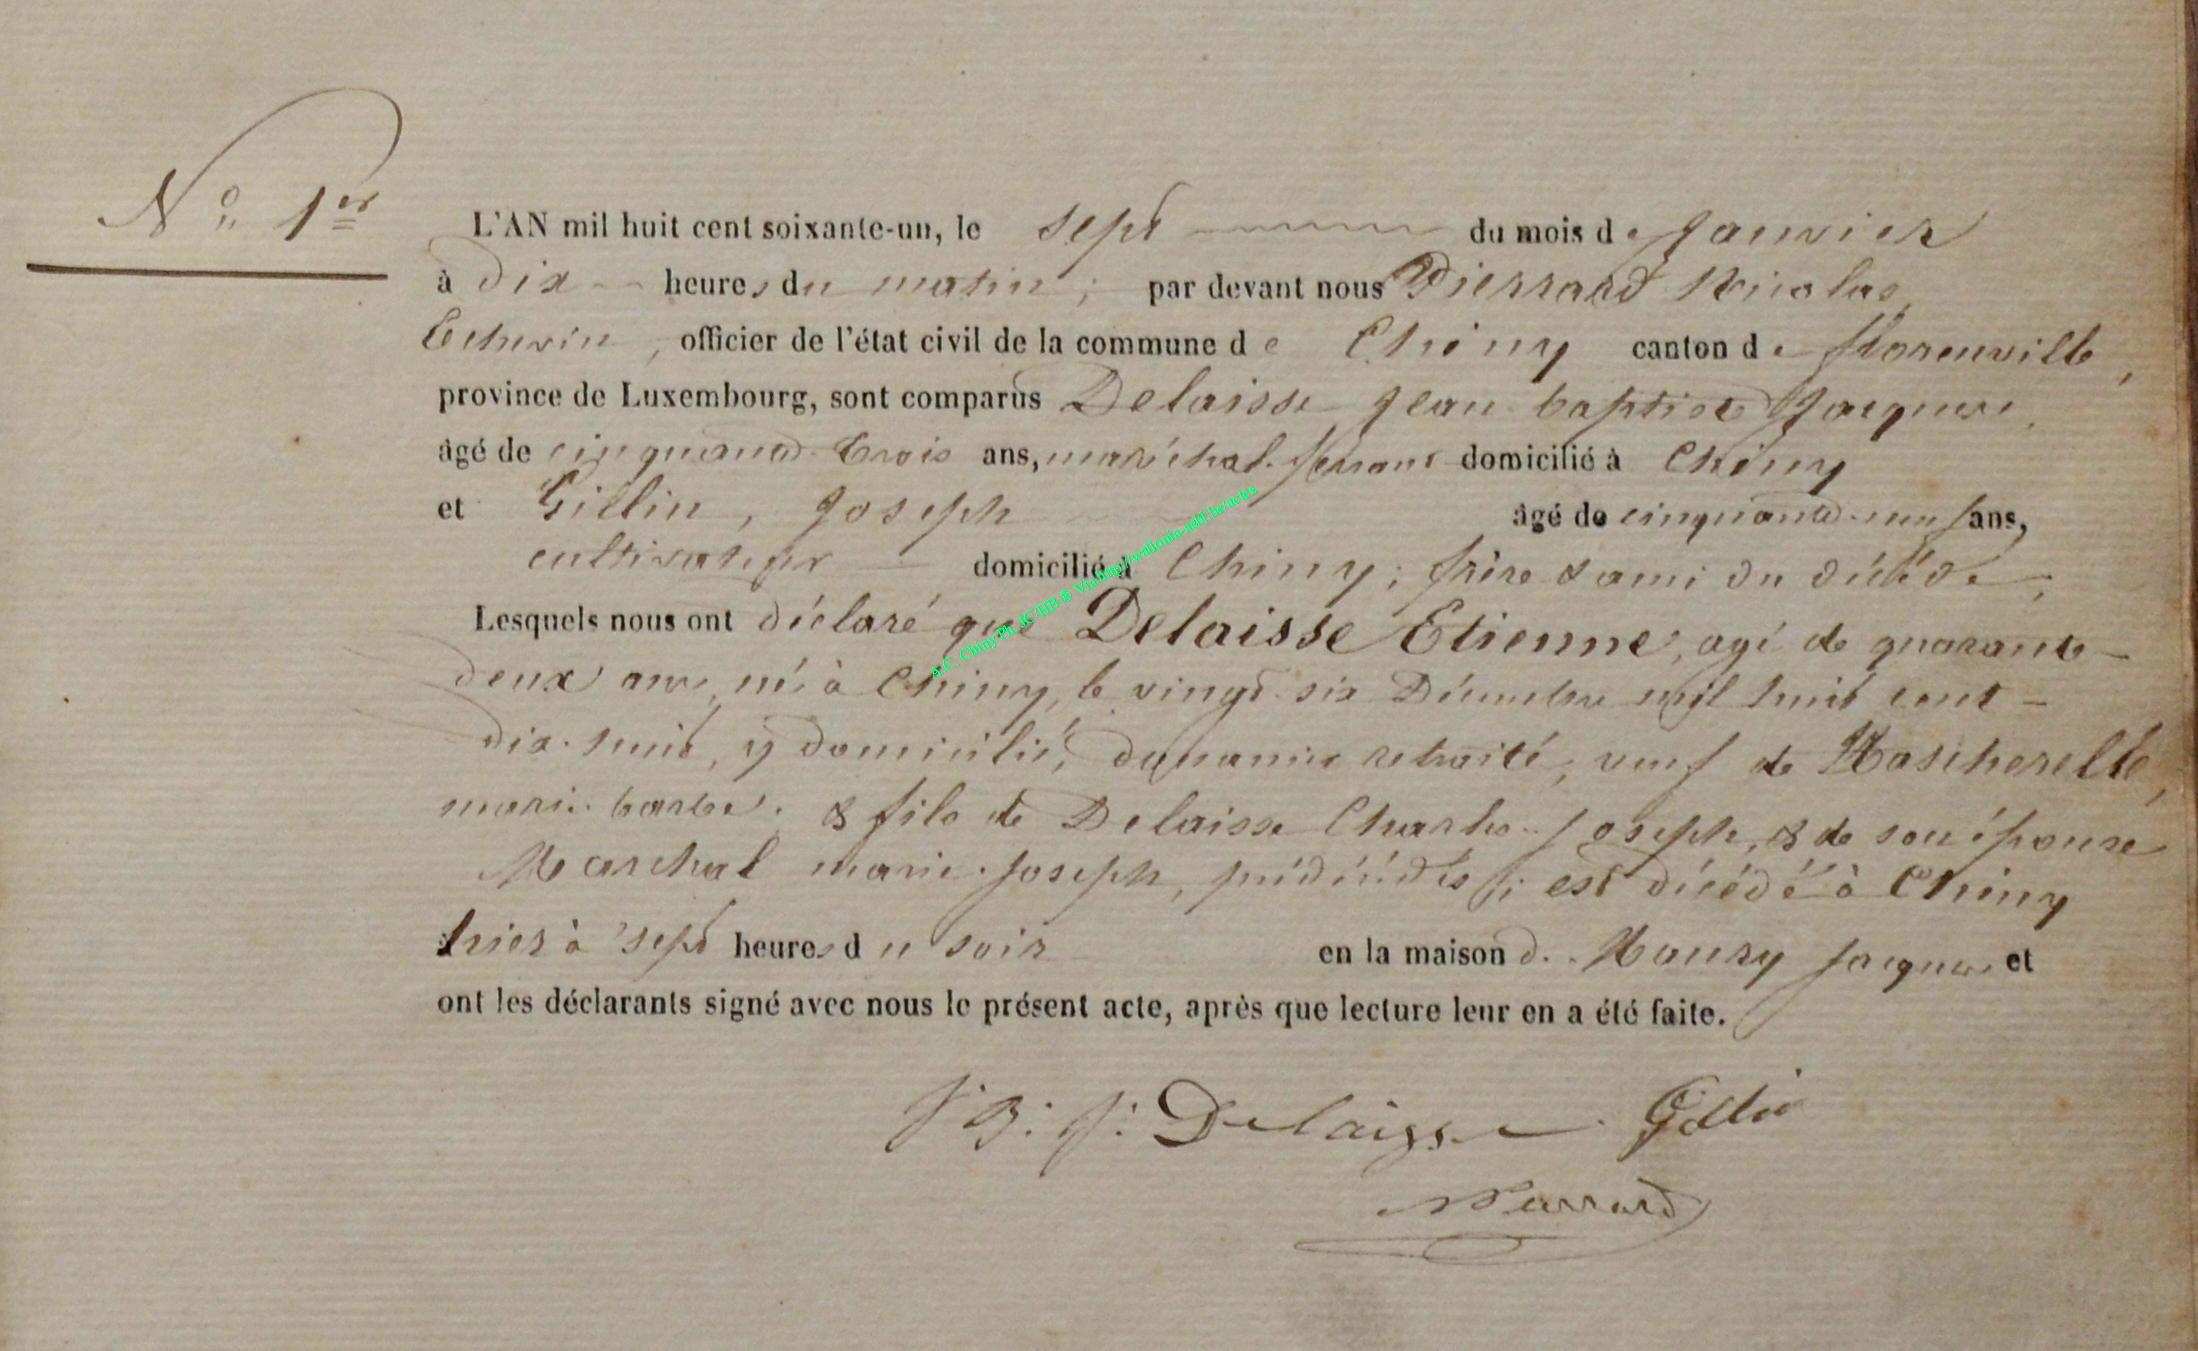 N° 1er
L'AN mil huit cent soixante-un, le sept du mois de Janvier
à dix heures du matin ; par devant nous Pierrard Nicolas,
Echevin, officier de l'état civil de la commune de Chiny canton de florenville,
province de Luxembourg, sont comparus Delaisse Jean baptiste Jacques,
âgé de cinquante trois ans, maréchal ferrant domicilié à Chiny
et Gillin, Joseph âgé de cinquante-neuf ans,
cultivateur domicilié à Chiny ; frère & ami du décédé ;
Lesquels nous ont déclaré que Delaisse Etienne, agé de quarante-
deux ans, né à Chiny, le vingt-six Décembre mil huit cent-
dix-huit, y domicilié, douanier retraité, veuf de Hascherelle,
marie barbe, & fils de Delaisse Charles-Joseph, & de son épouse
Marchal marie-Joseph, prédécédés ; est décédé à Chiny
hier à sept heures du soir en la maison de Maury Jacques et
ont les déclarants signé avec nous le présent acte, après que lecture leur en a été faite.
J. B. J. Delaisse Gillin
Pierrard
A.C. Chiny Ph. JC/HB © Via http://wallonia-mbl.be/actes